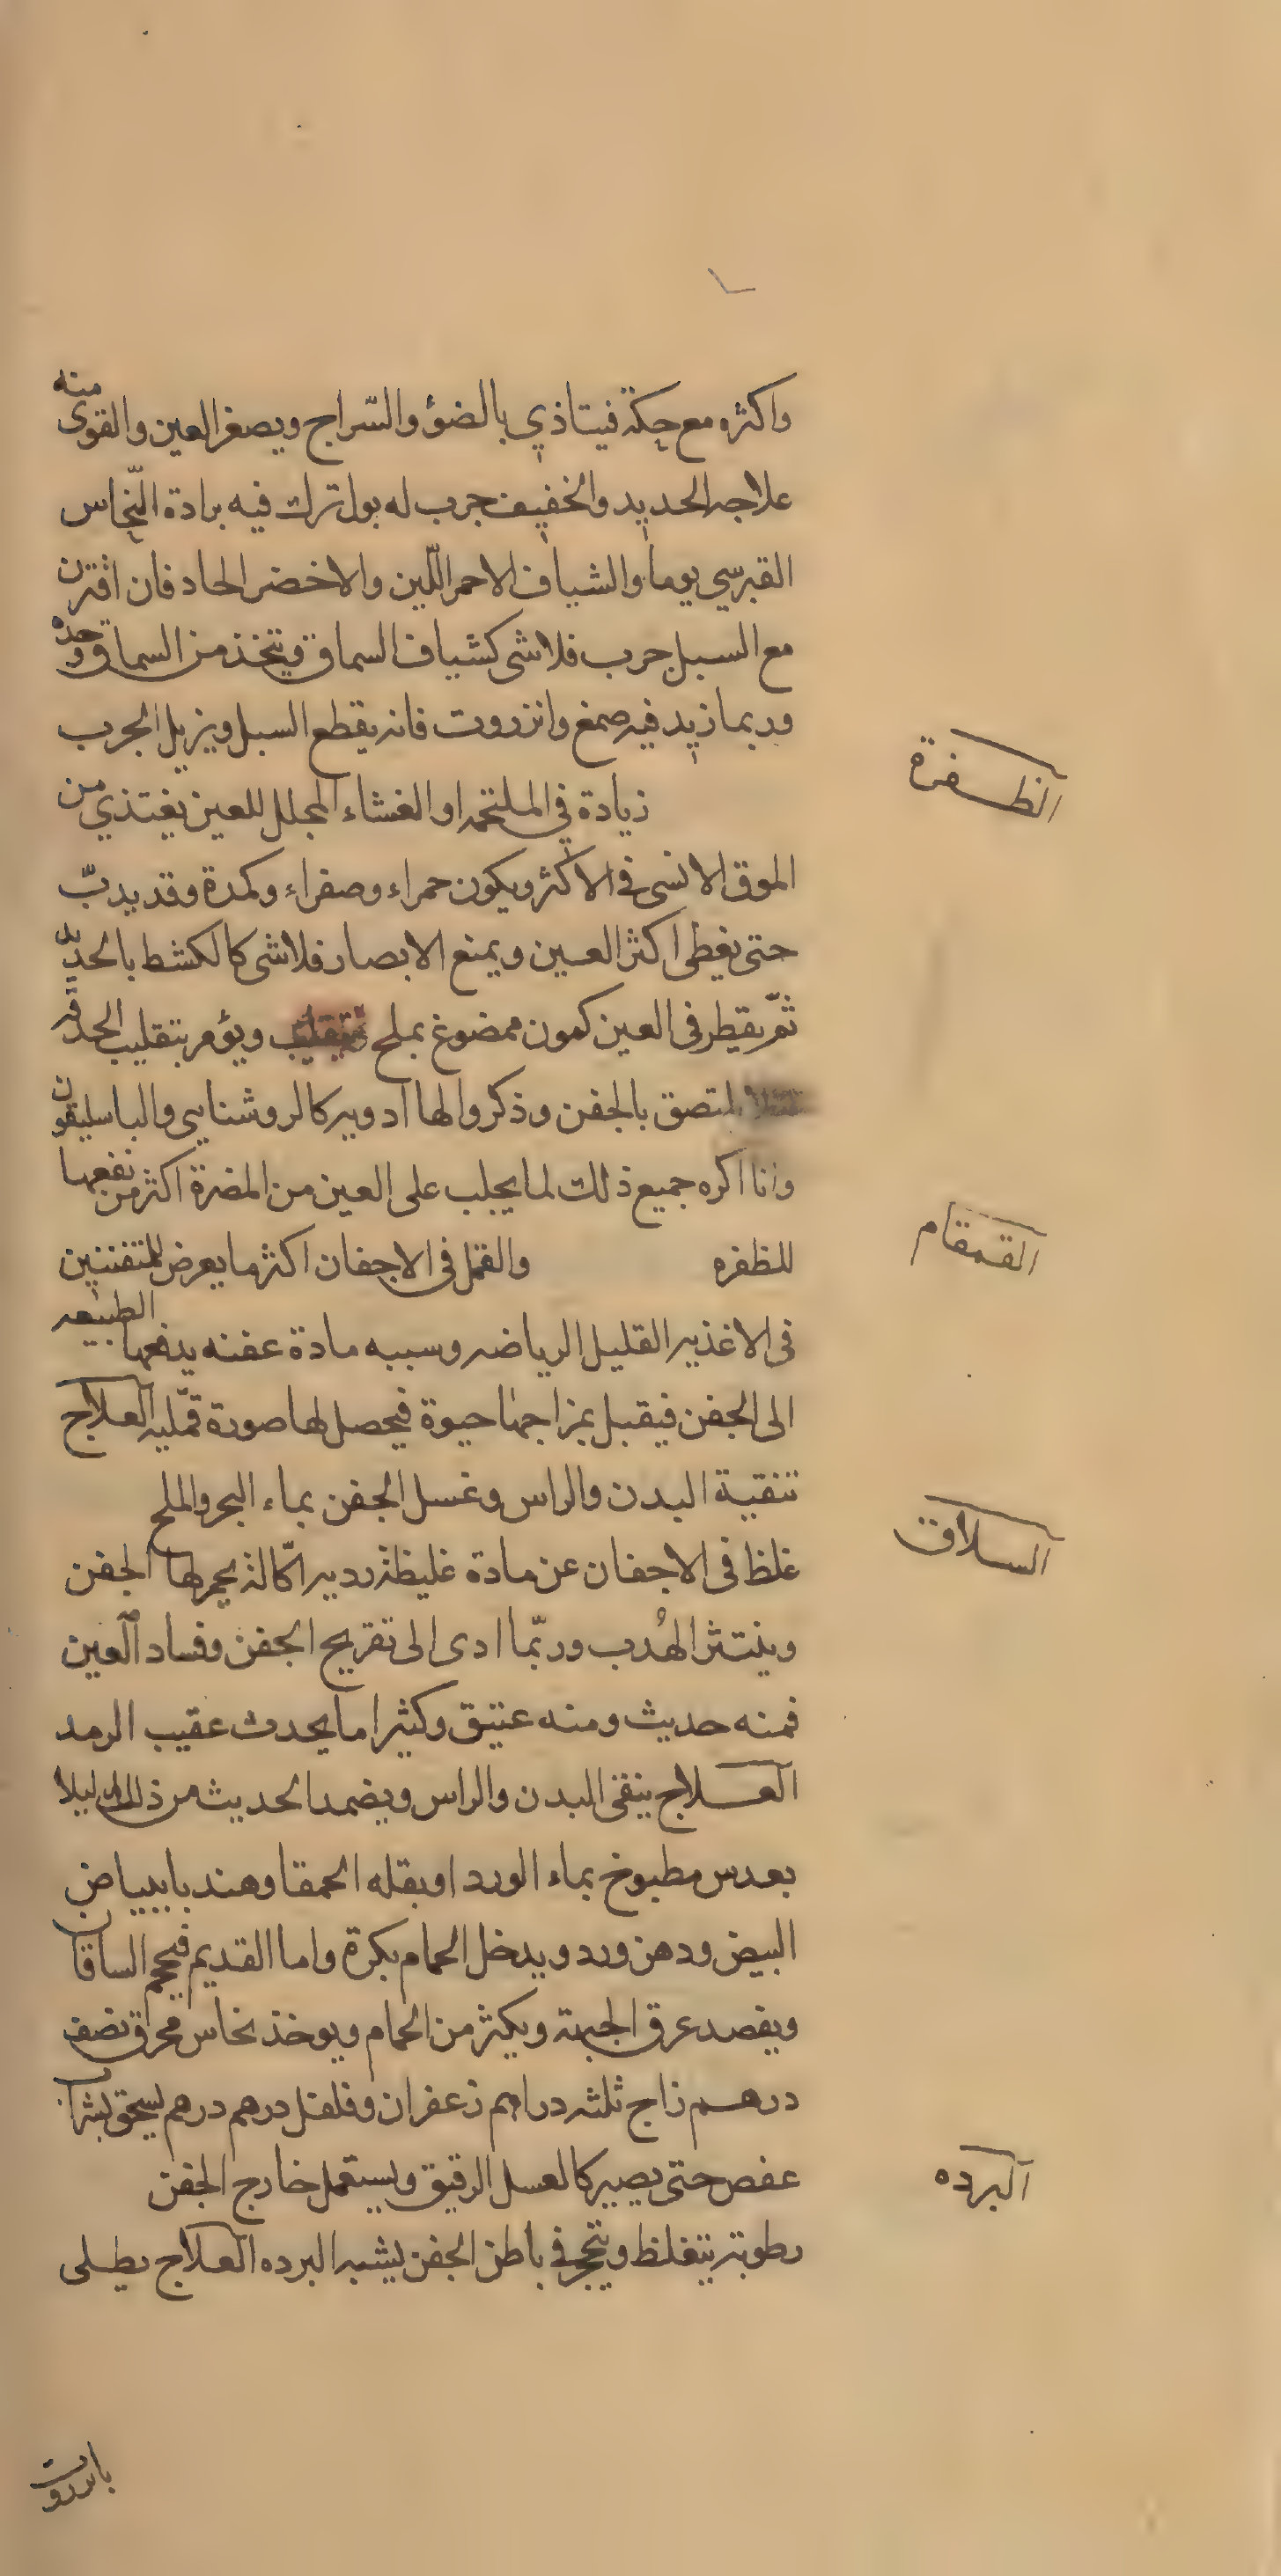 واكثره مع حكة فيتاذي بالضؤ والسّراج ويصغر العين والقوى منه
علاجه الحديد والخفيف جرب له بول ترك فيه برادة النّحاس
القبرسي يوما والشياف الاحمر اللّين والاخضر الحاد فان اقترن
مع السبل جرب فلا شى كشياف السماق يتخذ من السماق وحده
وربما زيد فيه صمغ وانزروت فانه يقطع السبل ويزيل الجرب
الظفرة
زيادة في الملتحمه او الغشاء المجلل للعين يغتذي من
الموق الانسى في الاكثر ويكون حمراء وصفراء وكمدة وقد يدبّ
حتى يغطى اكثر العين ويمنع الابصار فلا شى كالكشط بالحديد
ثمّ يقطر فى العين كمون ممضوغ بملح ويؤمر بتقليب الحدقه
يلتصق بالجفن وذكروا لها ادويه كالروشنايى والباسليقون
وانا اكره جميع ذلك لما يجلب على العين من المضرة اكثر من نفعها
للظفره
القمقام
والقمل فى الاجفان اكثر ما يعرض للمتفننين
فى الاغذيه القليل الرياضه وسببه مادة عفنه يدفعها الطبيعه
الى الجفن فيقبل بمزاجها حيوة فيحصل لها صورة قمّليه العلاج
تنقية البدن والراس وغسل الجفن بماء البحر والملح
السلاق
غلظ فى الاجفان عن مادة غليظه رديه اكّالة يحمر لها الجفن
وينتثر الهُدب وربّما ادى الى تقريح الجفن وفساد العين
فمنه حديث ومنه عتيق وكثيرا ما يحدث عقيب الرمد
العلاج ينقى البدن والراس ويضمد الحديث من ذلك ليلا
بعدس مطبوخ بماء الورد او بقله الحمقا وهندبا ببياض
البيض ودهن ورد ويدخل الحمام بكرة واما القديم فيحجم الساقان
ويفصد عرق الجبهة ويكثر من الحمام ويوخذ نحاس محرق نصف
درهم زاج ثلثه دراهم زعفران وفلفل درهم درهم يسحق بشراب
عفص حتى يصير كالعسل الرقيق ويستعمل خارج الجفن
البرده
رطوبة يتغلظ ويتحجر في باطن الجفن يشبه البرده العلاج يطلى